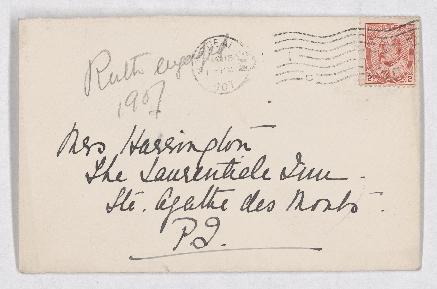 Ruth engaged
1907
Mrs Harrington
The Laurentide Inn.
Ste. Agathe des Monts.
P.Q.